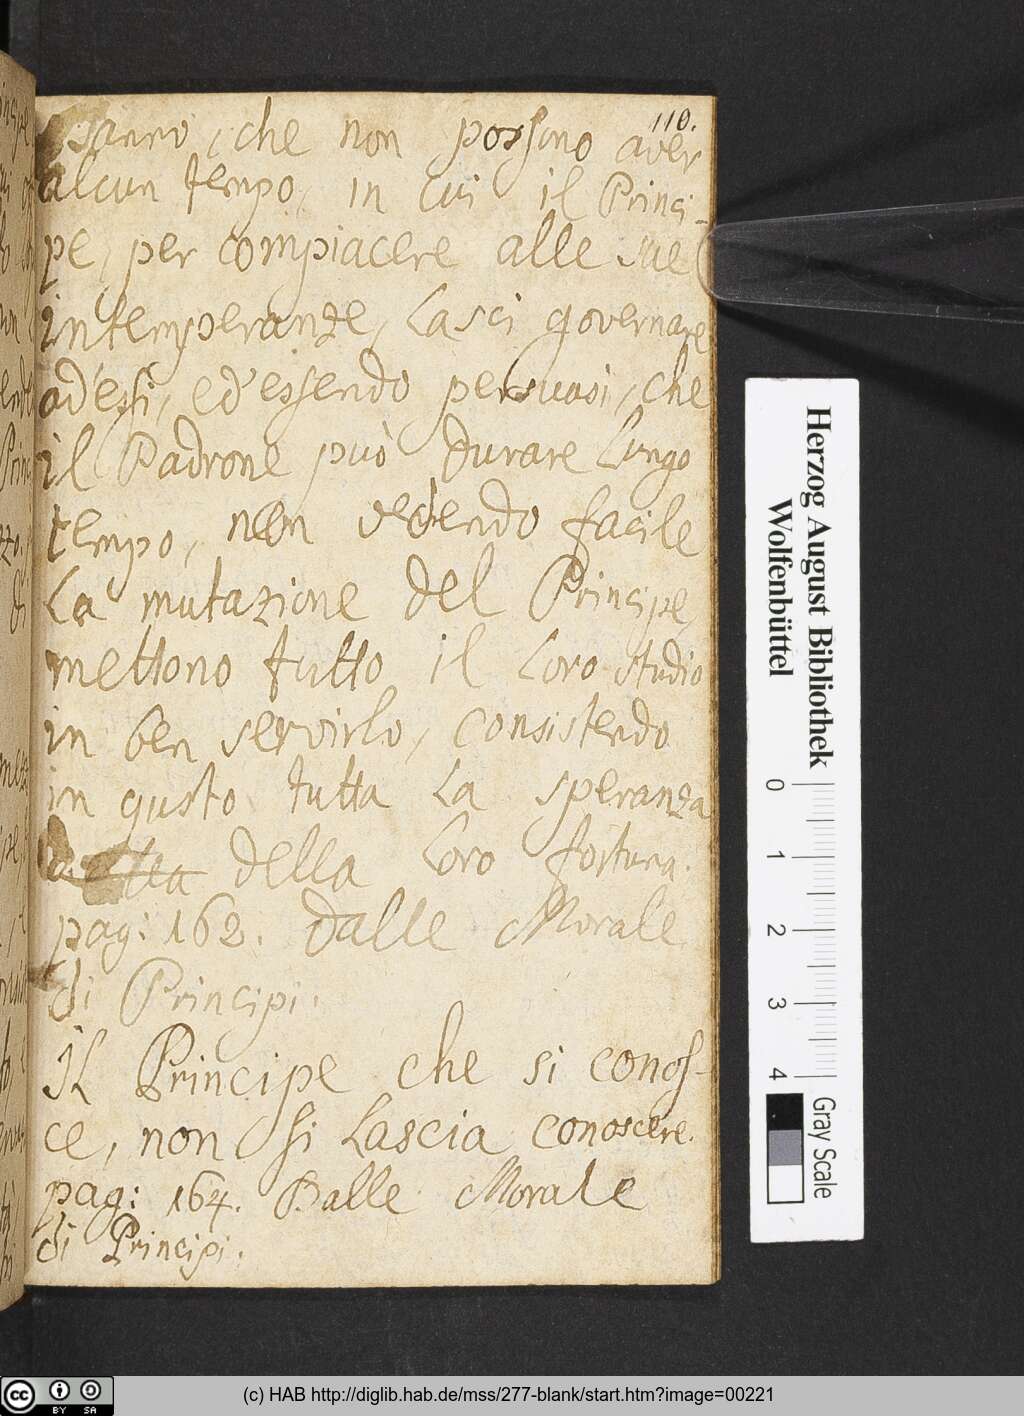 110.
sanno, che non possono aver
alcun tempo, in cui il Princi-
pe, per compiacere alle sue
intemperanze, Lasci governare
ad'essi, ed'essendo persuasi, che
il Padrone può durare Lungo
tempo, non vedendo facile
La mutazione del Principe,
mettono tutto il Loro studio
in ben servirlo, consistendo
in questo tutta La speranza
della Loro fortuna.
pag: 162. Dalle Morale
di Principi.
Il Principe che si conos-
ce, non si Lascia conoscere.
pag: 164. Dalle Morale
di Principi.
Herzog August Bibliothek
Wolfenbüttel
0 1 2 3 4
Gray Scale
cc BY SA
(c) HAB http://diglib.hab.de/mss/277-blank/start.htm?image=00221